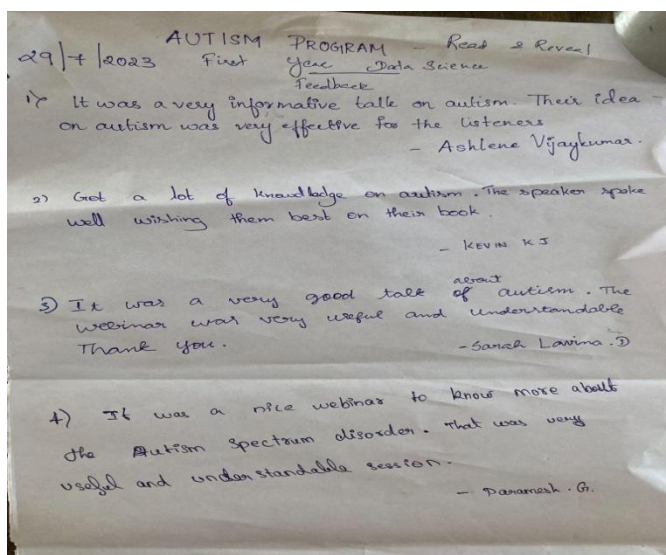 AUTISM PROGRAM - Read & Reveal
29/7/2023 First Year Data Science
Feedback
1) It was a very informative talk on autism. Their idea
on autism was very effective for the listeners
- Ashlene Vijaykumar.
2) Got a lot of knowdladge on autism. The speaker spoke
well wishing them best on their book.
- KEVIN KJ
3) It was a very good talk of about autism. The
webinar was very useful and understandable
Thank you. - Sarah Lavina.D
4) It was a nice webinar to know more about
the Autism spectrum disorder. That was very
useful and understandable session.
- Paramesh.G.